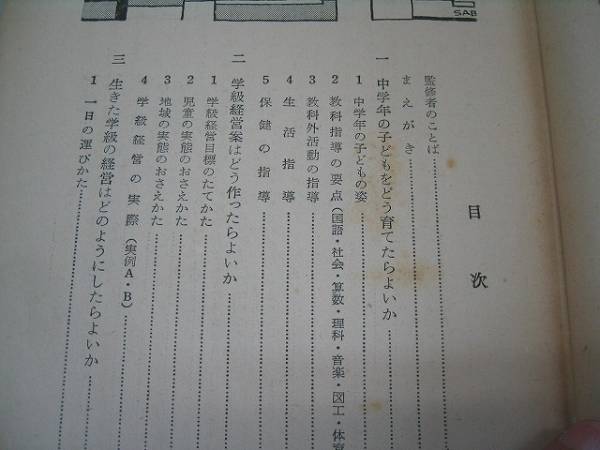 目次
監修者のことば
まえがき
一 中学年の子どもをどう育てたらよいか
1 中学年の子どもの姿
2 教科指導の要点(国語・社会・算数・理科・音楽・図工・体育
3 教科外活動の指導
4 生活指導
5 保健の指導
二 学級経営案はどう作ったらよいか
1 学級経営目標のたてかた
2 児童の実態のおさえかた
3 地域の実態のおさえかた
4 学級経営の実際(実例A・B)
三 生きた学級の経営はどのようにしたらよいか
1 一日の運びかた
SAB